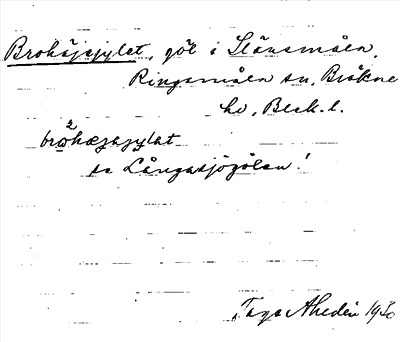 Brohäjsjylet, göl i Slänsmåla,
Ringamåla sn, Bräkne
hd, Blek. l.
bro²hæjsjylat
se Långasjögölen!
Tage Ahedin 1930